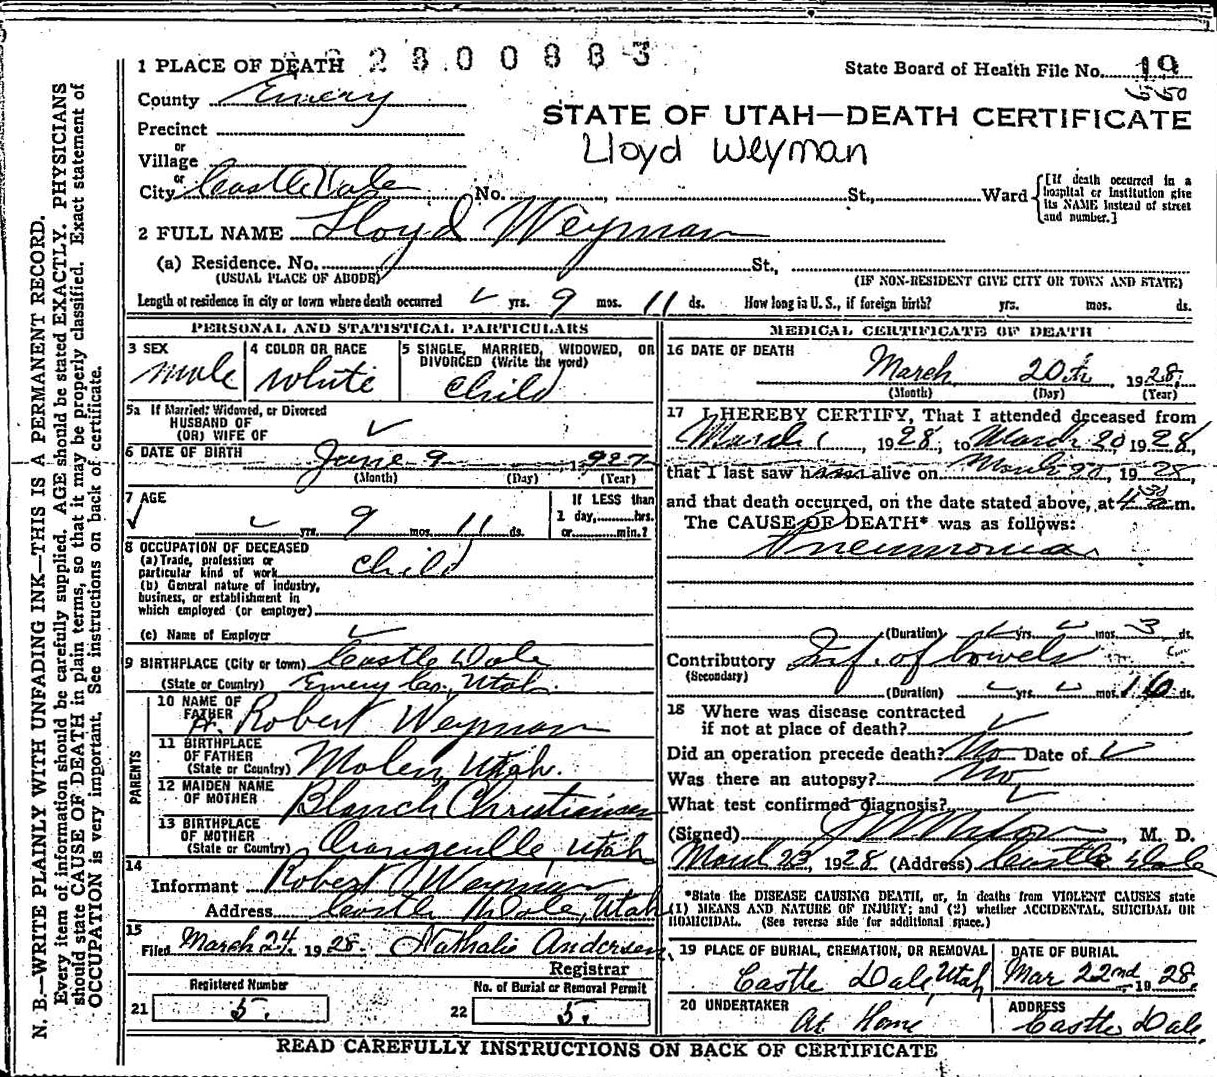 1 PLACE OF DEATH 2 8 0 0 8 8 3
State Board of Health File No. 19
County Emery
STATE OF UTAH—DEATH CERTIFICATE
Precinct
or
Lloyd Weyman
Village
or
City Castle Dale No. , St., Ward
[If death occurred in a hospital or institution give its NAME instead of street and number.]
2 FULL NAME Lloyd Weyman
(a) Residence. No. St.,
(USUAL PLACE OF ABODE) (IF NON-RESIDENT GIVE CITY OR TOWN AND STATE)
Length of residence in city or town where death occurred yrs. 9 mos. 11 ds. How long in U. S., if foreign birth? yrs. mos. ds.
PERSONAL AND STATISTICAL PARTICULARS
3 SEX 4 COLOR OR RACE 5 SINGLE, MARRIED, WIDOWED, OR
DIVORCED (Write the word)
male white child
5a If Married, Widowed, or Divorced
HUSBAND OF
(OR) WIFE OF
6 DATE OF BIRTH June 9 1927
(Month) (Day) (Year)
7 AGE If LESS than
1 day, hrs.
yrs. 9 mos. 11 ds. or min.?
8 OCCUPATION OF DECEASED
(a) Trade, profession or
particular kind of work child
(b) General nature of industry,
business, or establishment in
which employed (or employer)
(c) Name of Employer
9 BIRTHPLACE (City or town) Castle Dale
(State or Country) Emery Co., Utah.
PARENTS
10 NAME OF
FATHER Robert Weyman
11 BIRTHPLACE
OF FATHER
(State or Country) Molen, Utah.
12 MAIDEN NAME
OF MOTHER Blanch Christiansen
13 BIRTHPLACE
OF MOTHER
(State or Country) Orangeville, Utah
14
Informant Robert Weyman
Address Castle Dale, Utah
15
Filed March 24, 1928. Nathalie Andersen
Registrar
Registered Number No. of Burial or Removal Permit
21 5. 22 5.
MEDICAL CERTIFICATE OF DEATH
16 DATE OF DEATH
March 20th, 1928.
(Month) (Day) (Year)
17 I HEREBY CERTIFY, That I attended deceased from
March 1, 1928, to March 20 1928,
that I last saw him alive on March 20, 1928,
and that death occurred, on the date stated above, at 4 30 m.
The CAUSE OF DEATH* was as follows:
Pneumonia
(Duration) yrs. mos. 3 ds.
Contributory Inf. of bowels
(Secondary)
(Duration) yrs. mos. 16 ds.
18 Where was disease contracted
if not at place of death?
Did an operation precede death? No Date of
Was there an autopsy? No
What test confirmed diagnosis?
(Signed) , M. D.
March 23, 1928 (Address) Castle Dale
*State the DISEASE CAUSING DEATH, or, in deaths from VIOLENT CAUSES state
(1) MEANS AND NATURE OF INJURY; and (2) whether ACCIDENTAL, SUICIDAL OR
HOMICIDAL. (See reverse side for additional space.)
19 PLACE OF BURIAL, CREMATION, OR REMOVAL DATE OF BURIAL
Castle Dale, Utah Mar 22nd 1928.
20 UNDERTAKER ADDRESS
At Home Castle Dale
READ CAREFULLY INSTRUCTIONS ON BACK OF CERTIFICATE
N. B.—WRITE PLAINLY WITH UNFADING INK—THIS IS A PERMANENT RECORD.
Every item of information should be carefully supplied. AGE should be stated EXACTLY. PHYSICIANS
should state CAUSE OF DEATH in plain terms, so that it may be properly classified. Exact statement of
OCCUPATION is very important. See instructions on back of certificate.